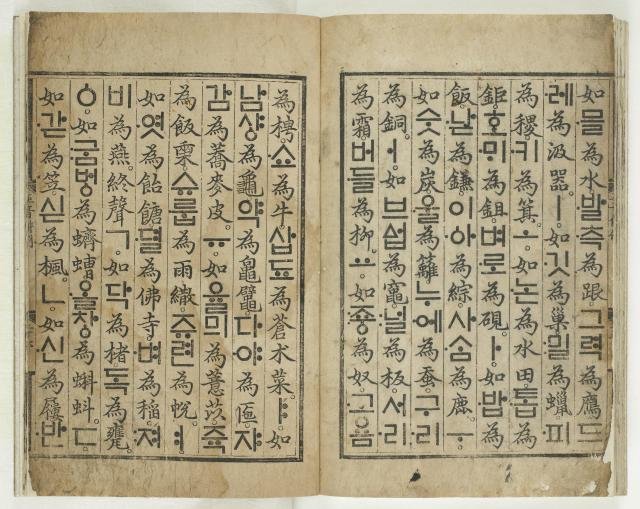 如믈為水。발측為跟。그력為鴈。드
레為汲器。ㅣ。如깃為巢。밀為蠟。피
為稷。키為箕。ㅗ。如논為水田。톱為
鉅。호ᄆᆡ為鉏。벼로為硯。ㅏ。如밥為
飯。낟為鎌。이ᅌᅡ為綜。사ᄉᆞᆷ為鹿。ㅜ。
如숫為炭。울為籬。누에為蚕。구리
為銅。ㅓ。如브ᅀᅥᆸ為竈。널為板。서리
為霜。버들為柳。ㅛ。如죠ᇰ為奴。고욤
為梬。쇼為牛。삽됴為蒼朮菜。ㅑ。如
남샤ᇰ為龜。약為鼅鼊。다야為匜。쟈
감為蕎麥皮。ㅠ。如율믜為薏苡。쥭
為飯𣖄。슈룹為雨繖。쥬련為帨。ㅕ。
如엿為飴餹。뎔為佛寺。벼為稻。져
비為燕。終聲ㄱ。如닥為楮。독為甕。
ㆁ。如굼버ᇰ為蠐螬。올차ᇰ為蝌蚪。ㄷ。
如갇為笠。싣為楓。ㄴ。如신為屨。반